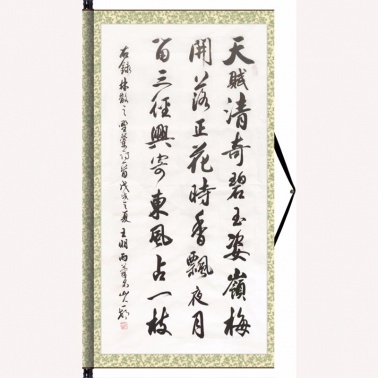 天賦清奇碧玉姿嶺梅
開落正花時香飄夜月
留三徑興寄東風占一枝
右錄林敏之雪鶯詩一首戊戌之夏王明